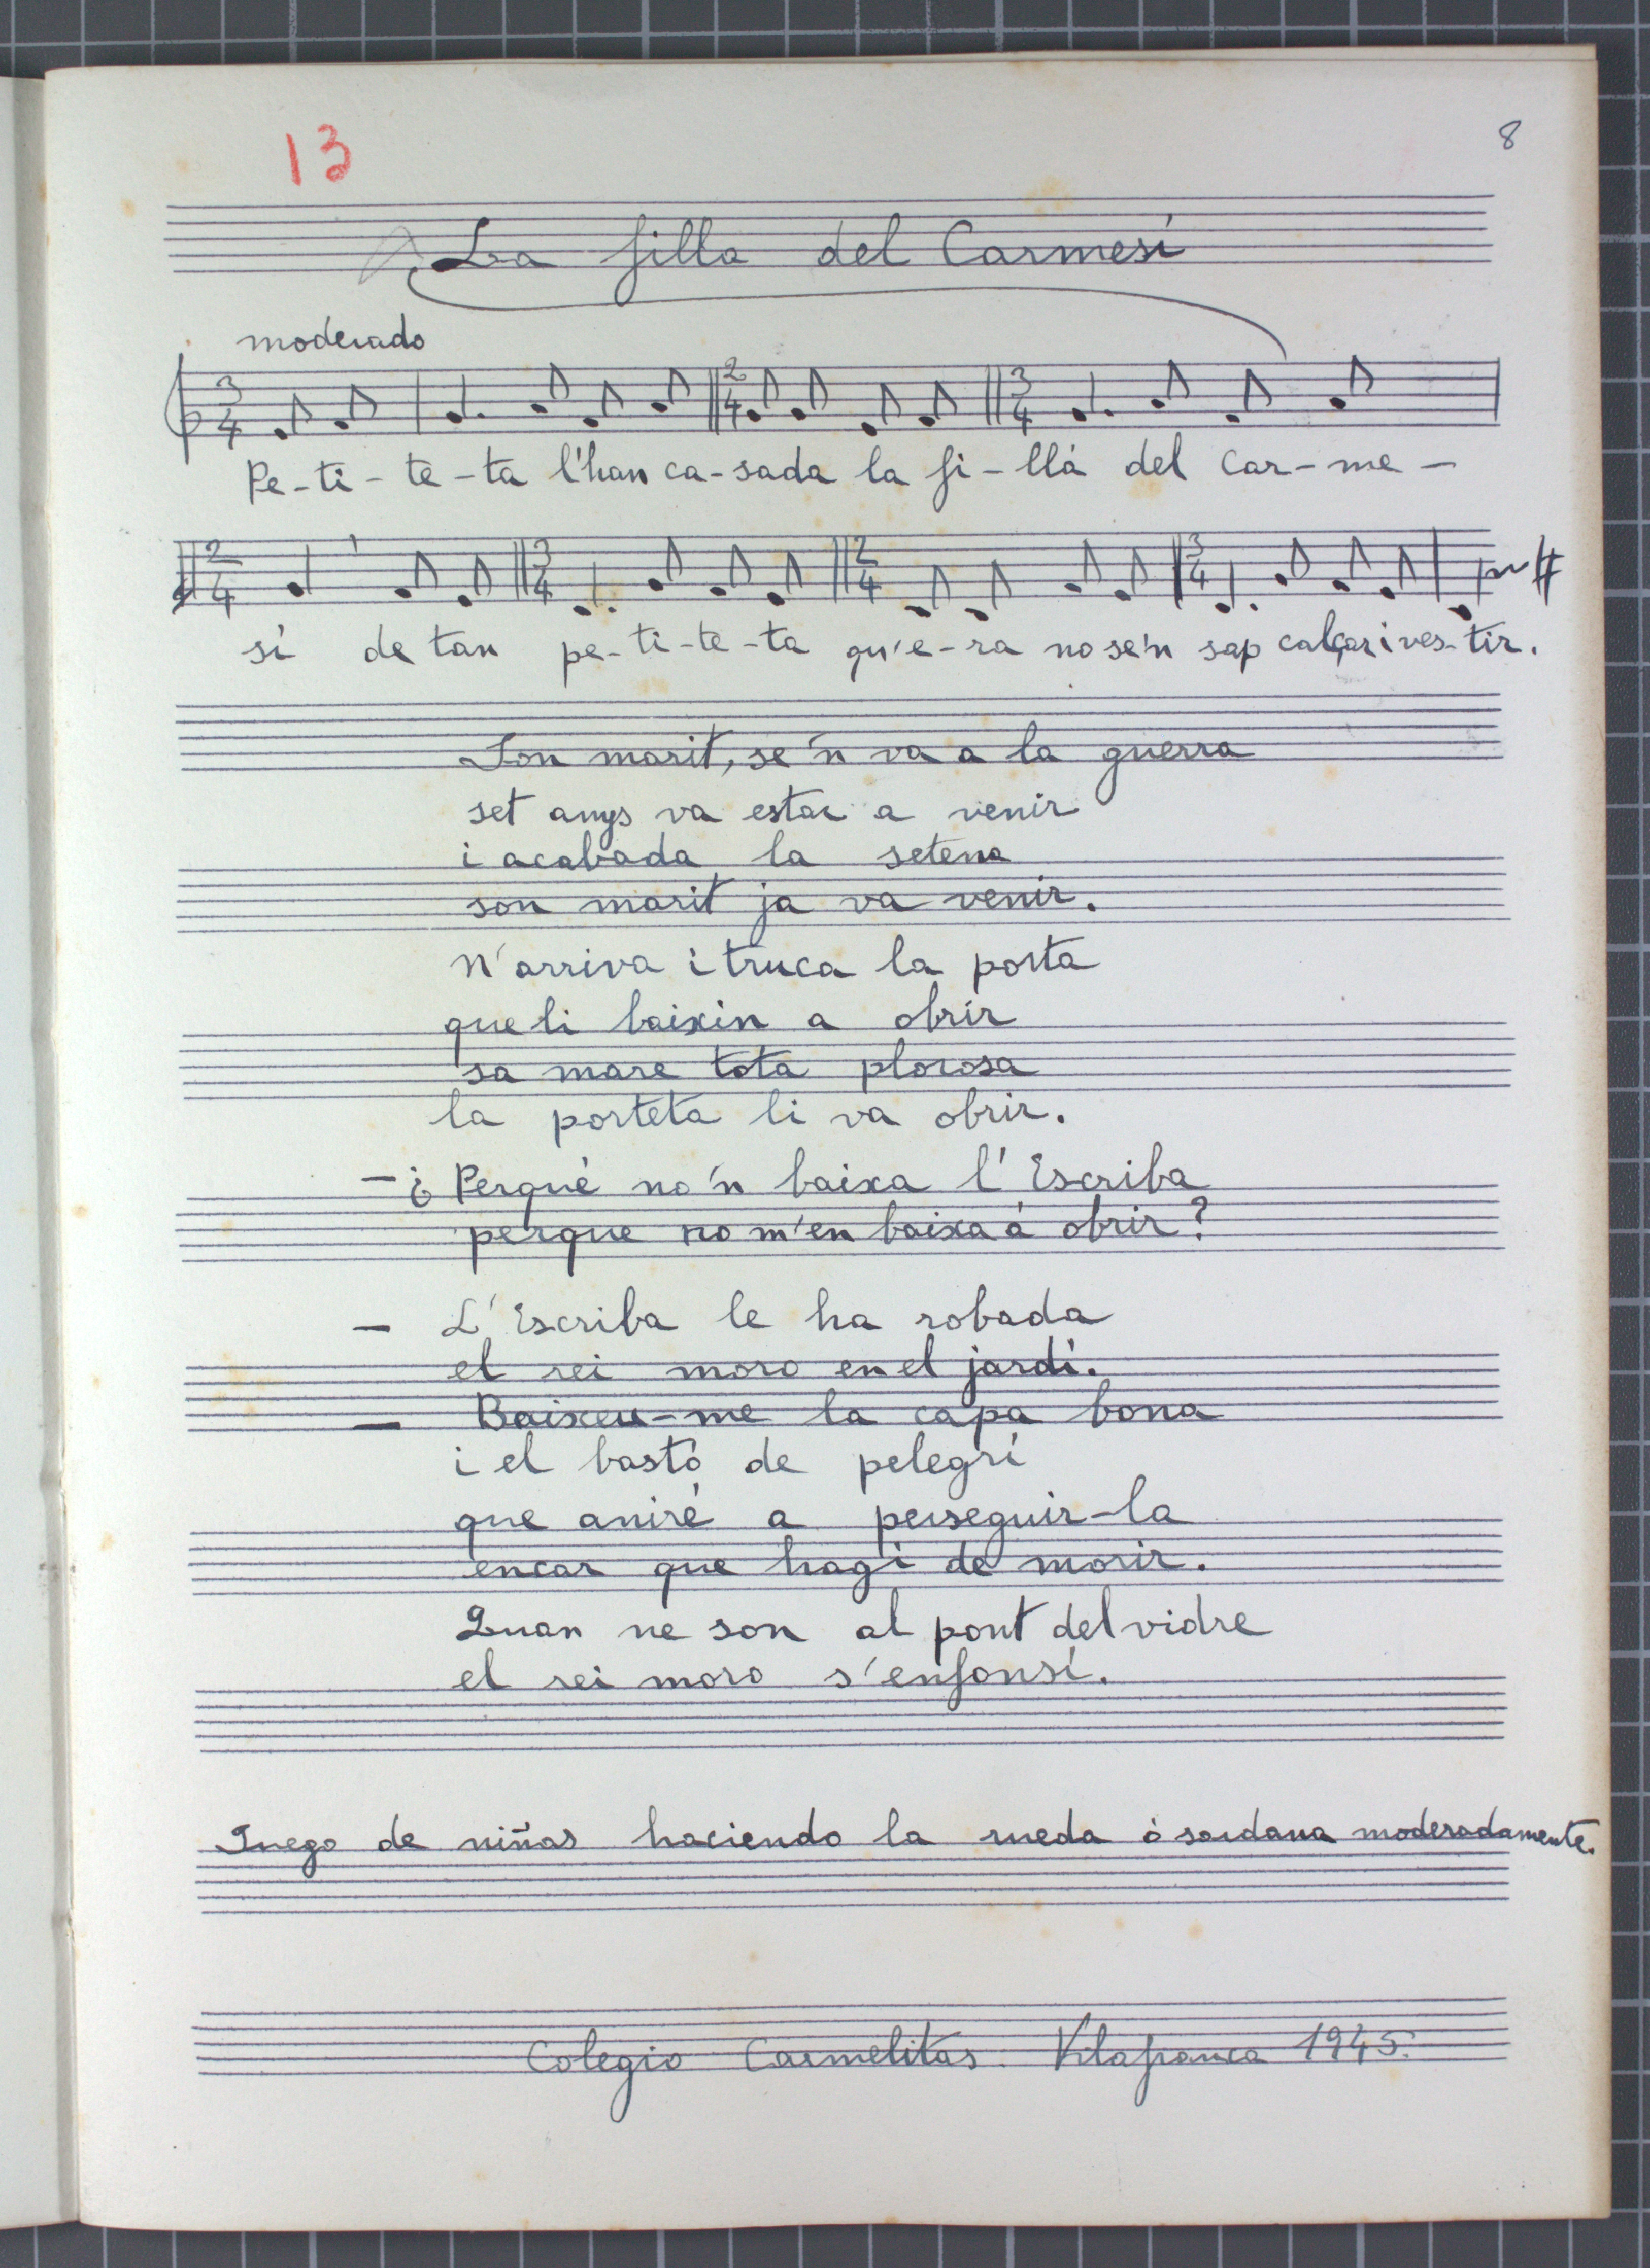 13
8
La filla del Carmesí
moderado
3 4 2 4 3 4
Pe-ti-te-ta l'han ca-sada la fi-lla del Car-me-
2 4 3 4 2 4 3 4
sí de tan pe-ti-te-ta qu'e-ra no se'n sap calçar i ves-tir.
Son marit, se'n va a la guerra
set anys va estar a venir
i acabada la setena
son marit ja va venir.
N'arriva i truca la porta
que li baixin a obrir
sa mare tota plorosa
la porteta li va obrir.
- ¿Perquè no'n baixa l'Escriba
perque no m'en baixa à obrir?
- L'Escriba le ha robada
el rei moro en el jardí.
- Baixeu-me la capa bona
i el bastó de pelegrí
que aniré a perseguir-la
encar que hagi de morir.
Quan ne son al pont del vidre
el rei moro s'enfonsí.
Juego de niñas haciendo la rueda ó sardana moderadamente.
Colegio Carmelitas. Vilafranca 1945.